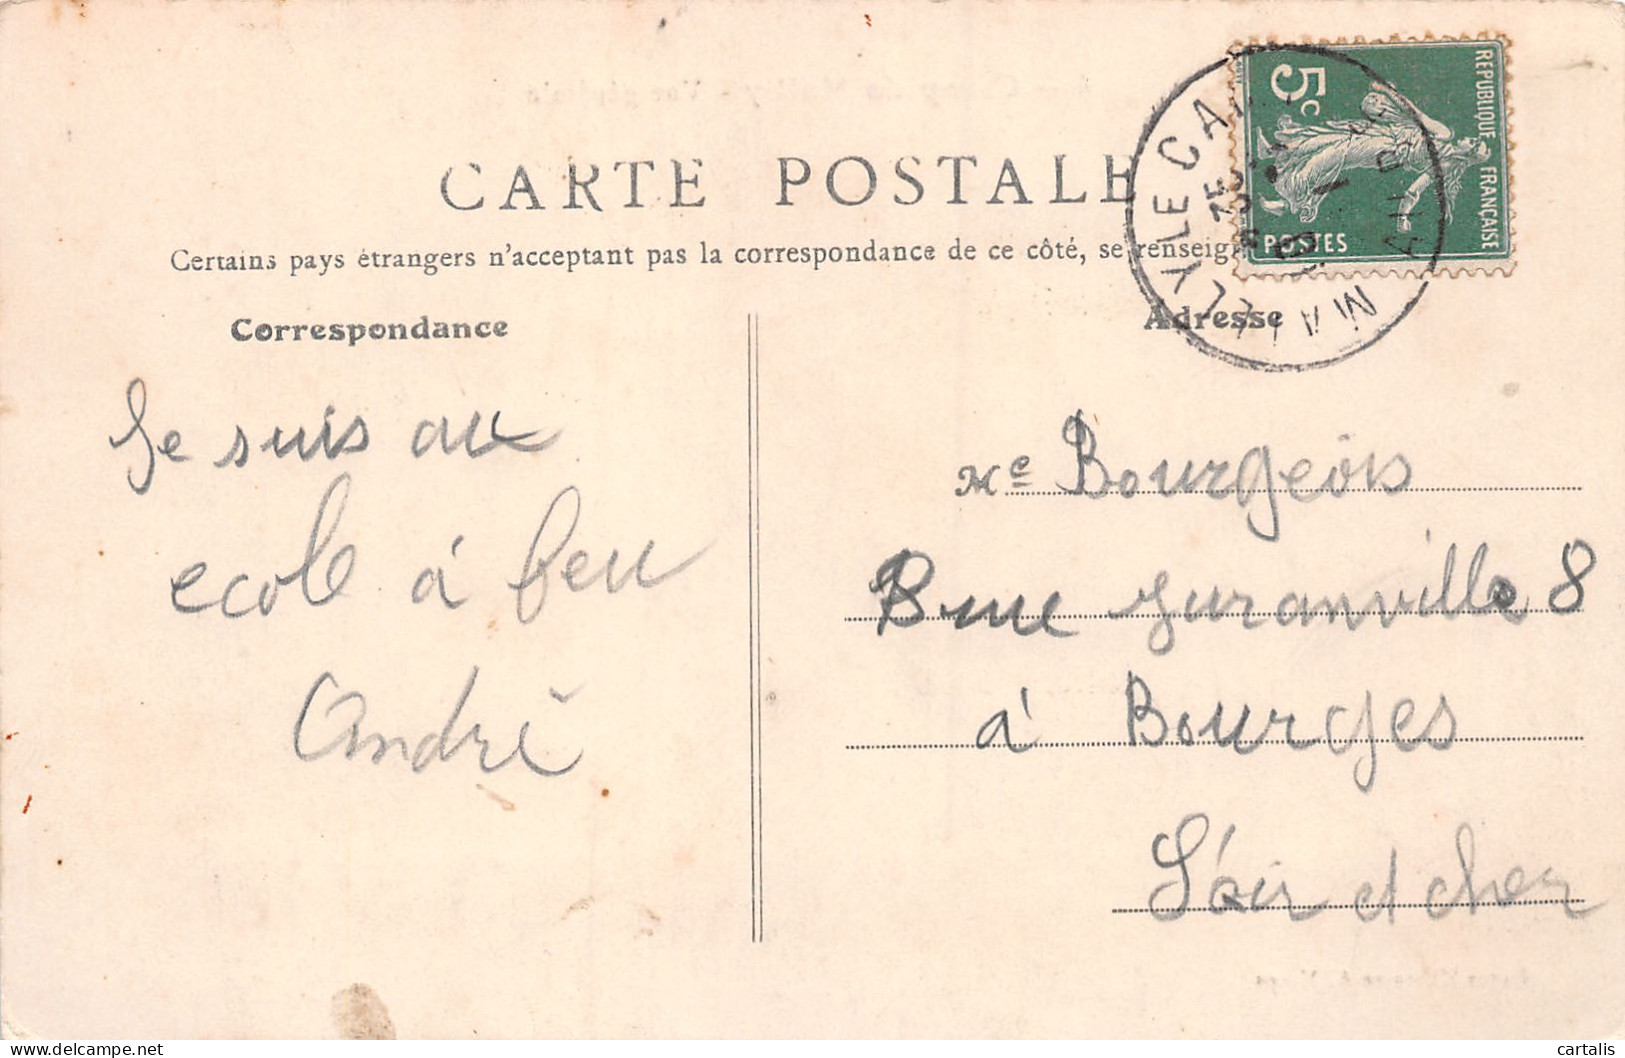 CARTE POSTALE
Certains pays étrangers n'acceptant pas la correspondance de ce côté, se renseig
Correspondance
Adresse
REPUBLIQUE FRANÇAISE
5c
POSTES
MAILLY LE CA
AUBE
Je suis au
ecole à feu
André
Me Bourgeois
Rue Juranville 8
à Bourges
Cher
cartalis